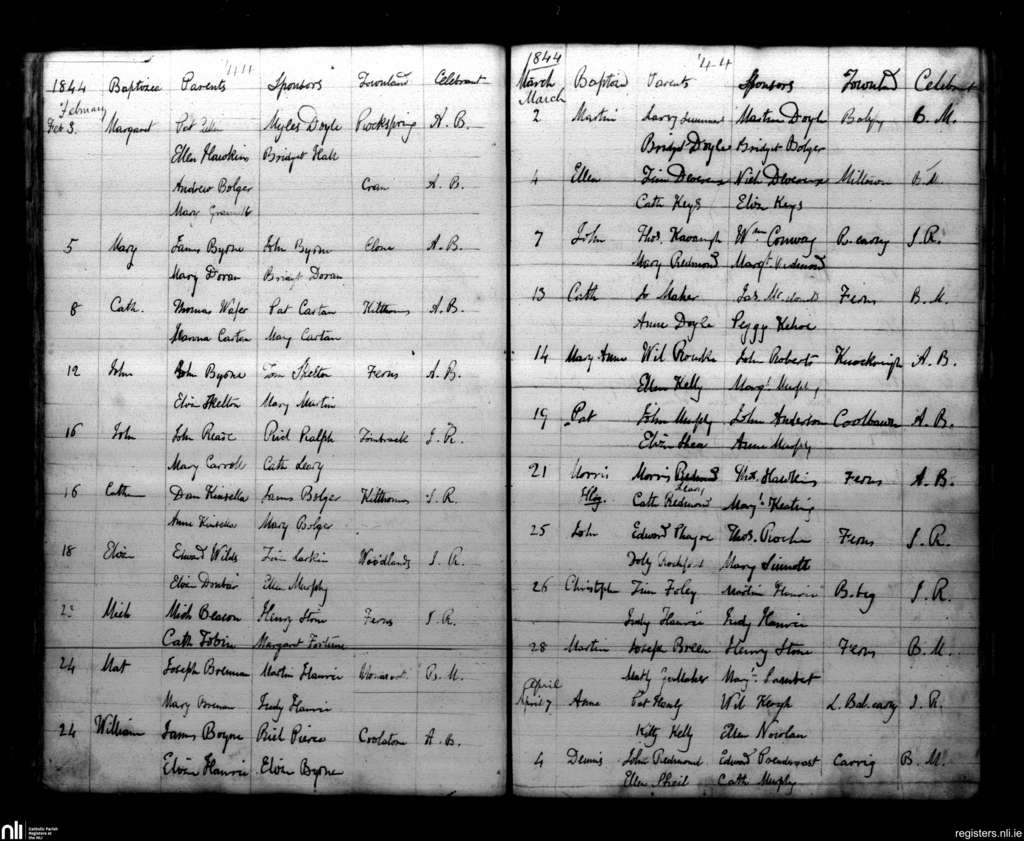 1844 Baptized Parents Sponsors Townland Celebrant
February
Feb 3. Margaret Pat Myles Doyle Rockspring A. B.
Ellen Hawkins Bridget Hall
Andrew Bolger Crain A. B.
Mary
5 Mary James Byrne John Byrne Clone A. B.
Mary Doran Bridgt Doran
8 Cath. Thomas Wafer Pat Cartan Kilthomas A. B.
Hanna Cartan Mary Cartan
12 John John Byrne Tom Skelton Ferns A. B.
Elizn Skelton Mary Martin
16 John John Reade Rich Ralph Tombrack J. R.
Mary Carroll Cath Leary
16 Cathn Dan Kinsella James Bolger Kilthomas J. R.
Anne Kinsella Mary Bolger
18 Elizn Edward Wilds Tim Larkin Woodlands J. R.
Elizn Dunbar Ellen Murphy
Mich Mich Beacon Henry Stone Ferns J. R.
Cath Tobin Margaret Fortune
24 Mat Joseph Brennan Martin Hanvin B. M.
Mary Brennan Judy Hanvin
24 William James Boyne Rich Pierce Coolatore A. B.
Elizn Hanvin Elizn Byrne
1844 '44
March Baptizd Parents Sponsors Townld Celebrant
March
2 Martin Larry Martin Doyle Balyfy B. M.
Bridgt Doyle Bridgt Bolger
4 Ellen Tim Devereux Nich Devereux Milltown B. M.
Cath Keys Elizn Keys
7 John Thos. Kavangh Wm Conway B. carey J. R.
Mary Redmond Margt Redmond
13 Cath Jo Maher Jas. Ferns B. M.
Anne Doyle Peggy Kehoe
14 Mary Anne Wil Rourke John Roberts Knocknirigh A. B.
Ellen Kelly Margt Murphy
19 Pat John Murphy John Anderson Coolbawn A. B.
Elizn Shea Anne Murphy
21 Morris Morris Redmond Thos. Hawkins Ferns A. B.
Illeg. Cath Redmond Leary Margt Keating
25 John Edward Phayre Thos. Roche Ferns J. R.
Dolly Rochford Mary Sinnott
26 Christphr Tim Foley Martin Hanvin B. beg J. R.
Judy Hanvin Judy Hanvin
28 Martin Joseph Breen Henry Stone Ferns B. M.
Margt Lambert
April
April 7 Anne Pat Hanly Wil Keogh L. Bal. carey J. R.
Kitty Kelly Ellen Nowlan
4 Dennis John Redmond Edward Prendergast Carrig B. M.
Ellen Sheil Cath Murphy
nli Catholic Parish
Registers at
the NLI
registers.nli.ie